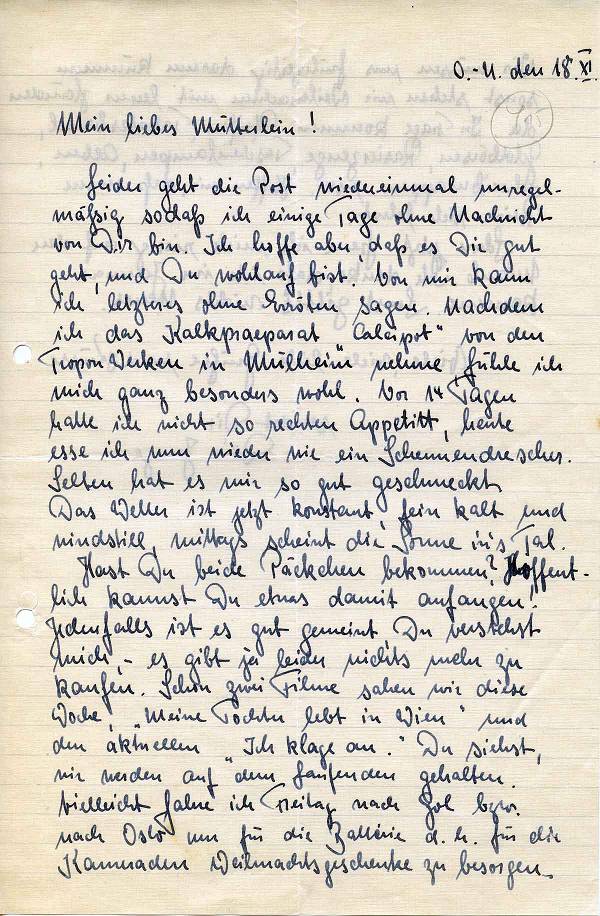 O.-U. den 18. XI.
Mein liebes Mütterlein!
Leider geht die Post wiedereinmal unregel-
mäßig sodaß ich einige Tage ohne Nachricht
von Dir bin. Ich hoffe aber, daß es Dir gut
geht, und Du wohlauf bist. Von mir kann
ich letzteres ohne Erröten sagen. Nachdem
ich das Kalkpraeparat "Calcipot" von den
Tropon Werken in Mülheim nehme, fühle ich
mich ganz besonders wohl. Vor 14 Tagen
hatte ich nicht so rechten Appetitt, heute
esse ich nun wieder wie ein Scheunendrescher.
Selten hat es mir so gut geschmeckt.
Das Wetter ist jetzt konstant, fein kalt und
windstill, mittags scheint die Sonne in's Tal.
Hast Du beide Päckchen bekommen? Hoffent-
lich kannst Du etwas damit anfangen!
Jedenfalls ist es gut gemeint, Du verstehst
mich, - es gibt ja leider nichts mehr zu
kaufen. Schon zwei Filme sahen wir diese
Woche, "Meine Tochter lebt in Wien" und
den aktuellen "Ich klage an." Du siehst,
wir werden auf dem Laufenden gehalten.
Vielleicht fahre ich Freitag nach Gol bzw.
nach Oslo um für die Batterie d. h. für die
Kameraden Weihnachtsgeschenke zu besorgen.